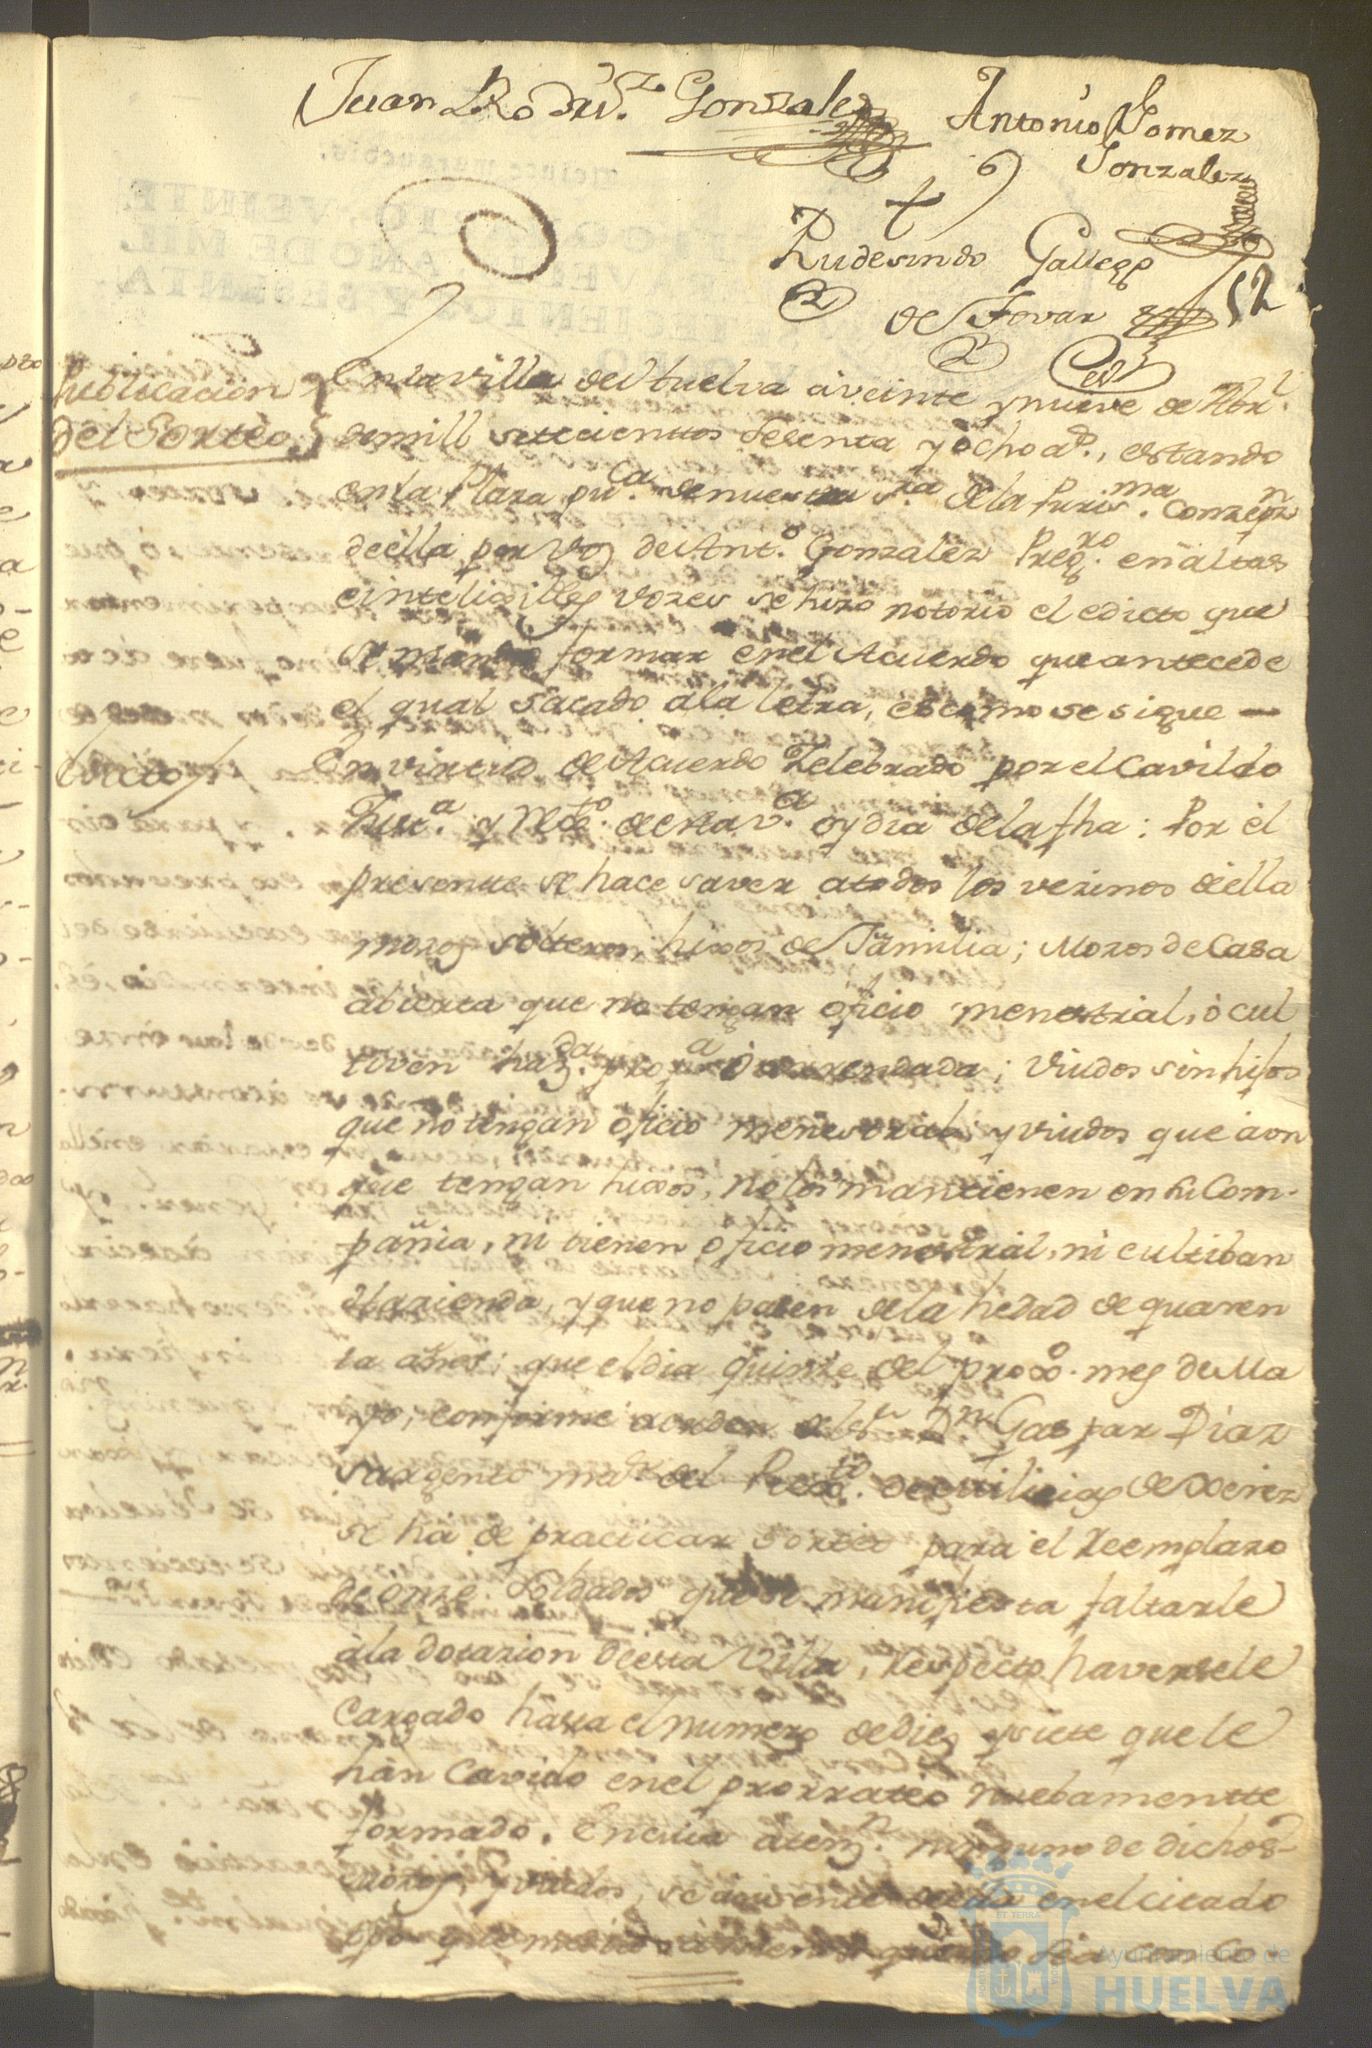 Juan Rodrig.z Gonzalez
Antonio Gomez
Gonzalez
Rudesindo Gallego
de Tovar
52
Publicacion
del Sorteo
En la villa de Huelva à veinte y nueve de Abr.l
de mill settecienttos sesenta y ocho a.s, estando
en la Plaza pu.ca de nuestra S.ra de la Puris.ma Conzepn
de ella por voz de Ant.o Gonzalez Preg.ro en altas
e intelixibles vozes se hizo notorio el edicto que
se mando formar en el Acuerdo que antecede
el qual sacado a la letra, es como se sigue —
Edicto
En virtud de Acuerdo Zelebrado por el Cavildo
Just.a y Reg.to de esta v.a oy dia de la fha: Por el
presentte se hace saver a todos los vezinos de ella
mozos solteros, hixos de Familia; Mozos de Casa
abierta que no tengan oficio menestrial, ò cul
tiven haz.da prop.a ò arrendada; Viudos sin hijos
que no tengan oficio menestrial, y viudos que aon
que tengan hixos, no los mantienen en su Com-
pañia, ni tienen oficio menestrial, ni cultiban
Hazienda, y que no pasen de la hedad de quaren
ta años; que el dia quinze del prox.o mes de Ma
yo, conforme a orden del S.r D.n Gaspar Diaz
Sargento m.or del Rex.to de Milicias de Xerez
se ha de practicar sorteo para el Reemplazo
de onze Soldados que se manifiesta faltarle
à la dotazion de esta Villa, respecto haversele
Cargado hasta el numero de diez y siete que le
han Cavido en el prorrateo nuebamentte
formado. En cuia aten.n ninguno de dichos
Mozos, y viudos, se ausente de ella en el citado
que
Ayuntamiento de
HUELVA